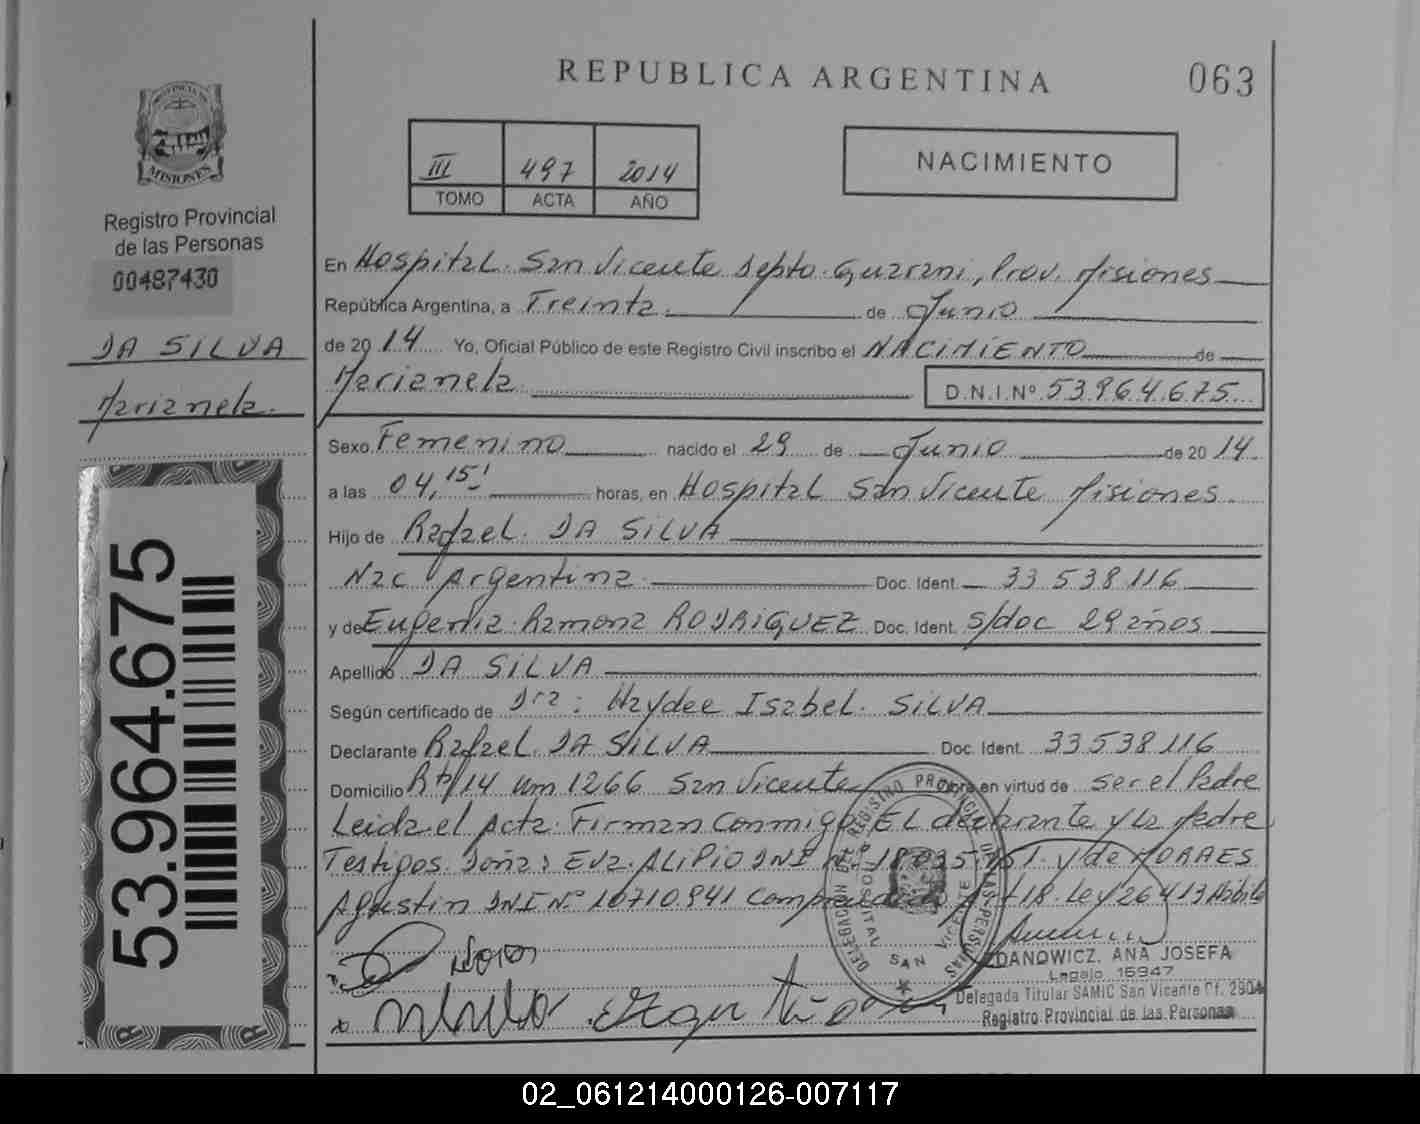 REPUBLICA ARGENTINA
063
PROVINCIA DE
MISIONES
Registro Provincial
de las Personas
00487430
DA SILVA
Marianela
53.964.675
III 497 2014
TOMO ACTA AÑO
NACIMIENTO
En Hospital San Vicente Depto. Guarani, Prov. Misiones
República Argentina, a Treinta de Junio
de 20 14 Yo, Oficial Público de este Registro Civil inscribo el NACIMIENTO de
Marianela D.N.I.Nº 53.964.675
Sexo Femenino nacido el 29 de Junio de 20 14
a las 04,15' horas, en Hospital San Vicente Misiones
Hijo de Rafael DA SILVA
Nac Argentina Doc. Ident. 33 538 116
y de Eugenia Ramona RODRIGUEZ Doc. Ident. s/doc 29 años
Apellido DA SILVA
Según certificado de Dra: Haydee Isabel SILVA
Declarante Rafael DA SILVA Doc. Ident. 33 538 116
Domicilio Rp/14 Km 1266 San Vicente Obra en virtud de ser el Padre
Leida el Acta Firman Conmigo EL declarante y la Madre
Testigos Doña: Eva ALIPIO DNI Nº y de MORAES
Agustin DNI Nº 10710941 Art 18 Ley 26413
DELEGACION DEL REGISTRO PROVINCIAL DE LAS PERSONAS
HOSPITAL
SAN VICENTE
ZDANOWICZ, ANA JOSEFA
Legajo 15947
Delegada Titular SAMIC San Vicente Cf. 2904
Registro Provincial de las Personas
02_061214000126-007117